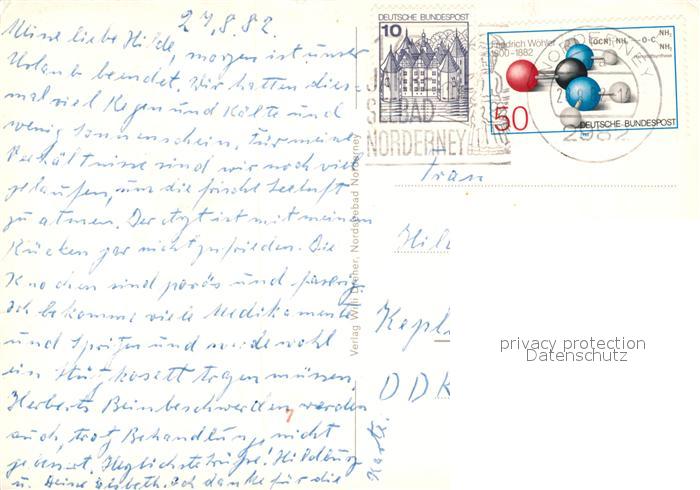 27.8.82.
Meine liebe Hilde, morgen ist unser
Urlaub beendet. Wir hatten dies-
mal viel Regen und Kälte und
wenig Sonnenschein, für meine
Verhältnisse sind wir noch viel
gelaufen, um die frische Seeluft
zu atmen. Der Arzt ist mit meinem
Rücken gar nicht zufrieden. Die
Knochen sind porös und
Ich bekomme viele Medikamente
und Spritzen und werde wohl
ein Stützkosett tragen müssen,
Herberts Beinbeschwerden werden
auch, trotz Behandlung, nicht
gebessert. Herzlichste Grüße! Hildburg
u. Deine Lisbeth. Ich danke für die
Karte.
Verlag Willi Dreher, Nordseebad Norderney
DEUTSCHE BUNDESPOST
10
SEEBAD
NORDERNEY
Friedrich Wöhler
1800-1882
OCN NH₄ O-C
NH₂
NH₂
50
DEUTSCHE BUNDESPOST
NORDERNEY
2982
Frau
Hil
Kepl
DDR
privacy protection
Datenschutz